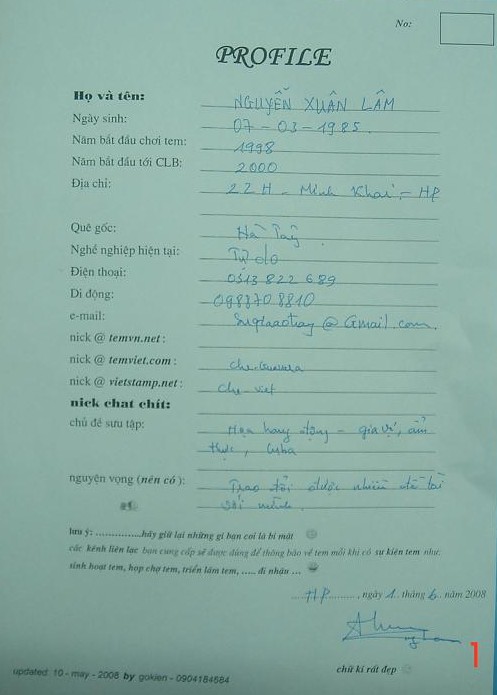 No:
PROFILE
Họ và tên: NGUYỄN XUÂN LÂM
Ngày sinh: 07-03-1985.
Năm bắt đầu chơi tem: 1998
Năm bắt đầu tới CLB: 2000
Địa chỉ: 22H - Minh Khai - HP
Quê gốc: Hà Tây
Nghề nghiệp hiện tại: Tự do
Điện thoại: 0313 822 689
Di động: 0988708810
e-mail: @ Gmail.com.
nick @ temvn.net :
nick @ temviet.com : che.Guevara
nick @ vietstamp.net : che_viet
nick chat chít:
chủ đề sưu tập: Họa hang động - gia vị, ẩm
thực, Cuba
nguyện vọng (nên có): Trao đổi được nhiều
mình.
lưu ý: ...............hãy giữ lại những gì bạn coi là bí mật
các kênh liên lạc bạn cung cấp sẽ được dùng để thông báo về tem mỗi khi có sự kiện tem như:
sinh hoạt tem, họp chợ tem, triển lãm tem, ..... đi nhậu ...
....HP........., ngày 1.. tháng 6. năm 2008
chữ kí rất đẹp
1
updated: 10 - may - 2008 by gokien - 0904184684